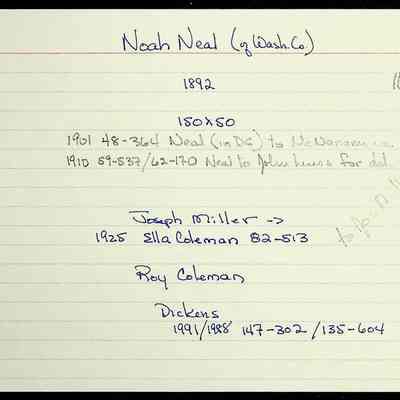 Noah Neal (of Wash. Co.)
1892
150 x 50
1901 48-364 Neal (in DC) to McNamara
1910 59-537/62-170 Neal to John for
Joseph Miller ->
1925 Ella Coleman 82-513
Roy Coleman
Dickens
1991/1988 147-302 / 135-604